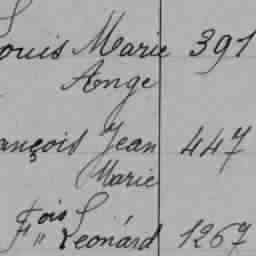 Louis Marie 391
Ange
ançois Jean 447
Marie
Fois
" Léonard 1267